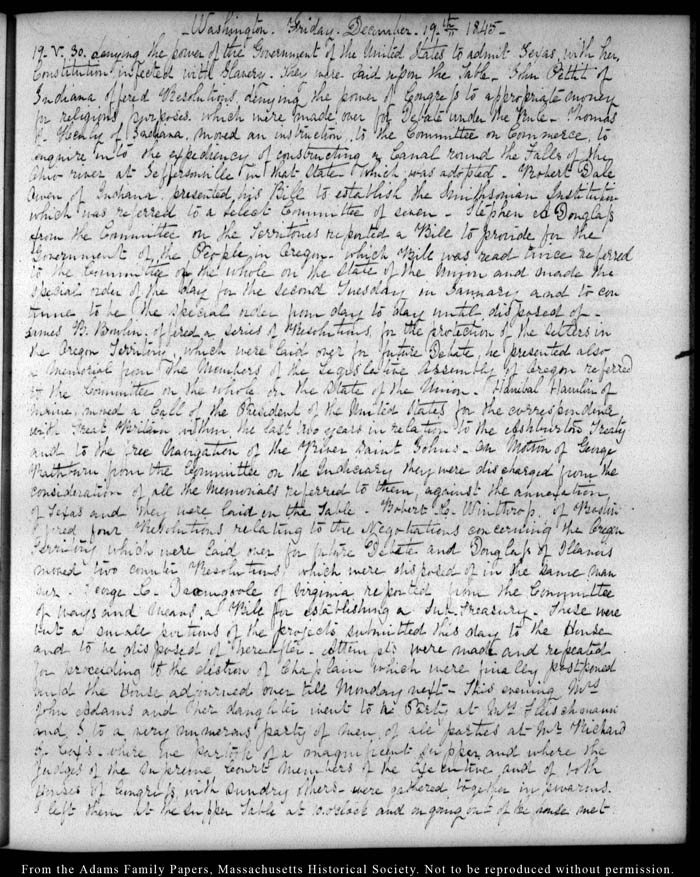 Washington. Friday. December. 19th 1845-
19. V. 30. denying the power of the Government of the United States to admit Texas, with her
Constitution infected with Slavery. They were laid upon the Table. John Pettit of
Indiana offered Resolutions, denying the power of Congress to appropriate money
for religious purposes. which were made over for Debate under the Rule. Thomas
J. Henly of Indiana, moved an instruction, to the Committee on Commerce, to
enquire into the expediency of constructing a Canal round the Falls of the
Ohio river at Jeffersonville in that State which was adopted. Robert Dale
Owen of Indiana presented his Bill to establish the Smithsonian Institution
which was referred to a select Committee of seven - Stephen A Douglass
from the Committee on the Territories reported a Bill to provide for the
Government of the People in Oregon - which Bill was read twice referred
to the Committee of the whole on the State of the Union and made the
special order of the day for the second Tuesday in January and to con
tinue to be the special order from day to day until disposed of -
James B. Bowlin. offered a series of Resolutions, for the protection of the settlers in
the Oregon Territory, which were laid over for future Debate, he presented also
a Memorial from the Members of the Legislative Assembly of Oregon referred
to the Committee on the whole on the State of the Union. Hanibal Hamlin of
Maine, moved a Call of the President of the United States for the correspondence
with Great Britain within the last two years in relation to the Ashburton Treaty
and to the free Navigation of the River Saint Johns - On Motion of George
Rathbun from the Committee on the Judiciary they were discharged from the
consideration of all the Memorials referred to them, against the annexation
of Texas and they were laid on the Table - Robert C. Winthrop. of Boston
offered four Resolutions relating to the Negotiations concerning the Oregon
Territory which were laid over for future Debate and Douglass of Illinois
moved two counter Resolutions, which were disposed of in the same man
ner. George C. Dromgoole of Virginia, reported from the Committee
of ways and Means, a Bill for establishing a Sub. Treasury - These were
but a small portions of the projects submitted this day to the House
and to be disposed of hereafter - Attempts were made and repeated
for proceeding to the election of Chaplain which were finelly postponed
and the House adjourned over till Monday next - This evening Mrs
John Adams and her daughter went to a Party at Mrs Fleischmann
and I to a very numerous party of men, of all parties at Mr Richard
S. Coxe's - where we partook of a magnificent supper and where the
Judges of the Supreme Court members of the Executive and of both
Houses of Congress, with sundry others - were gathered together in swarms.
I left them at the supper table at 10. o'clock and on going out of the house met
From the Adams Family Papers, Massachusetts Historical Society. Not to be reproduced without permission.